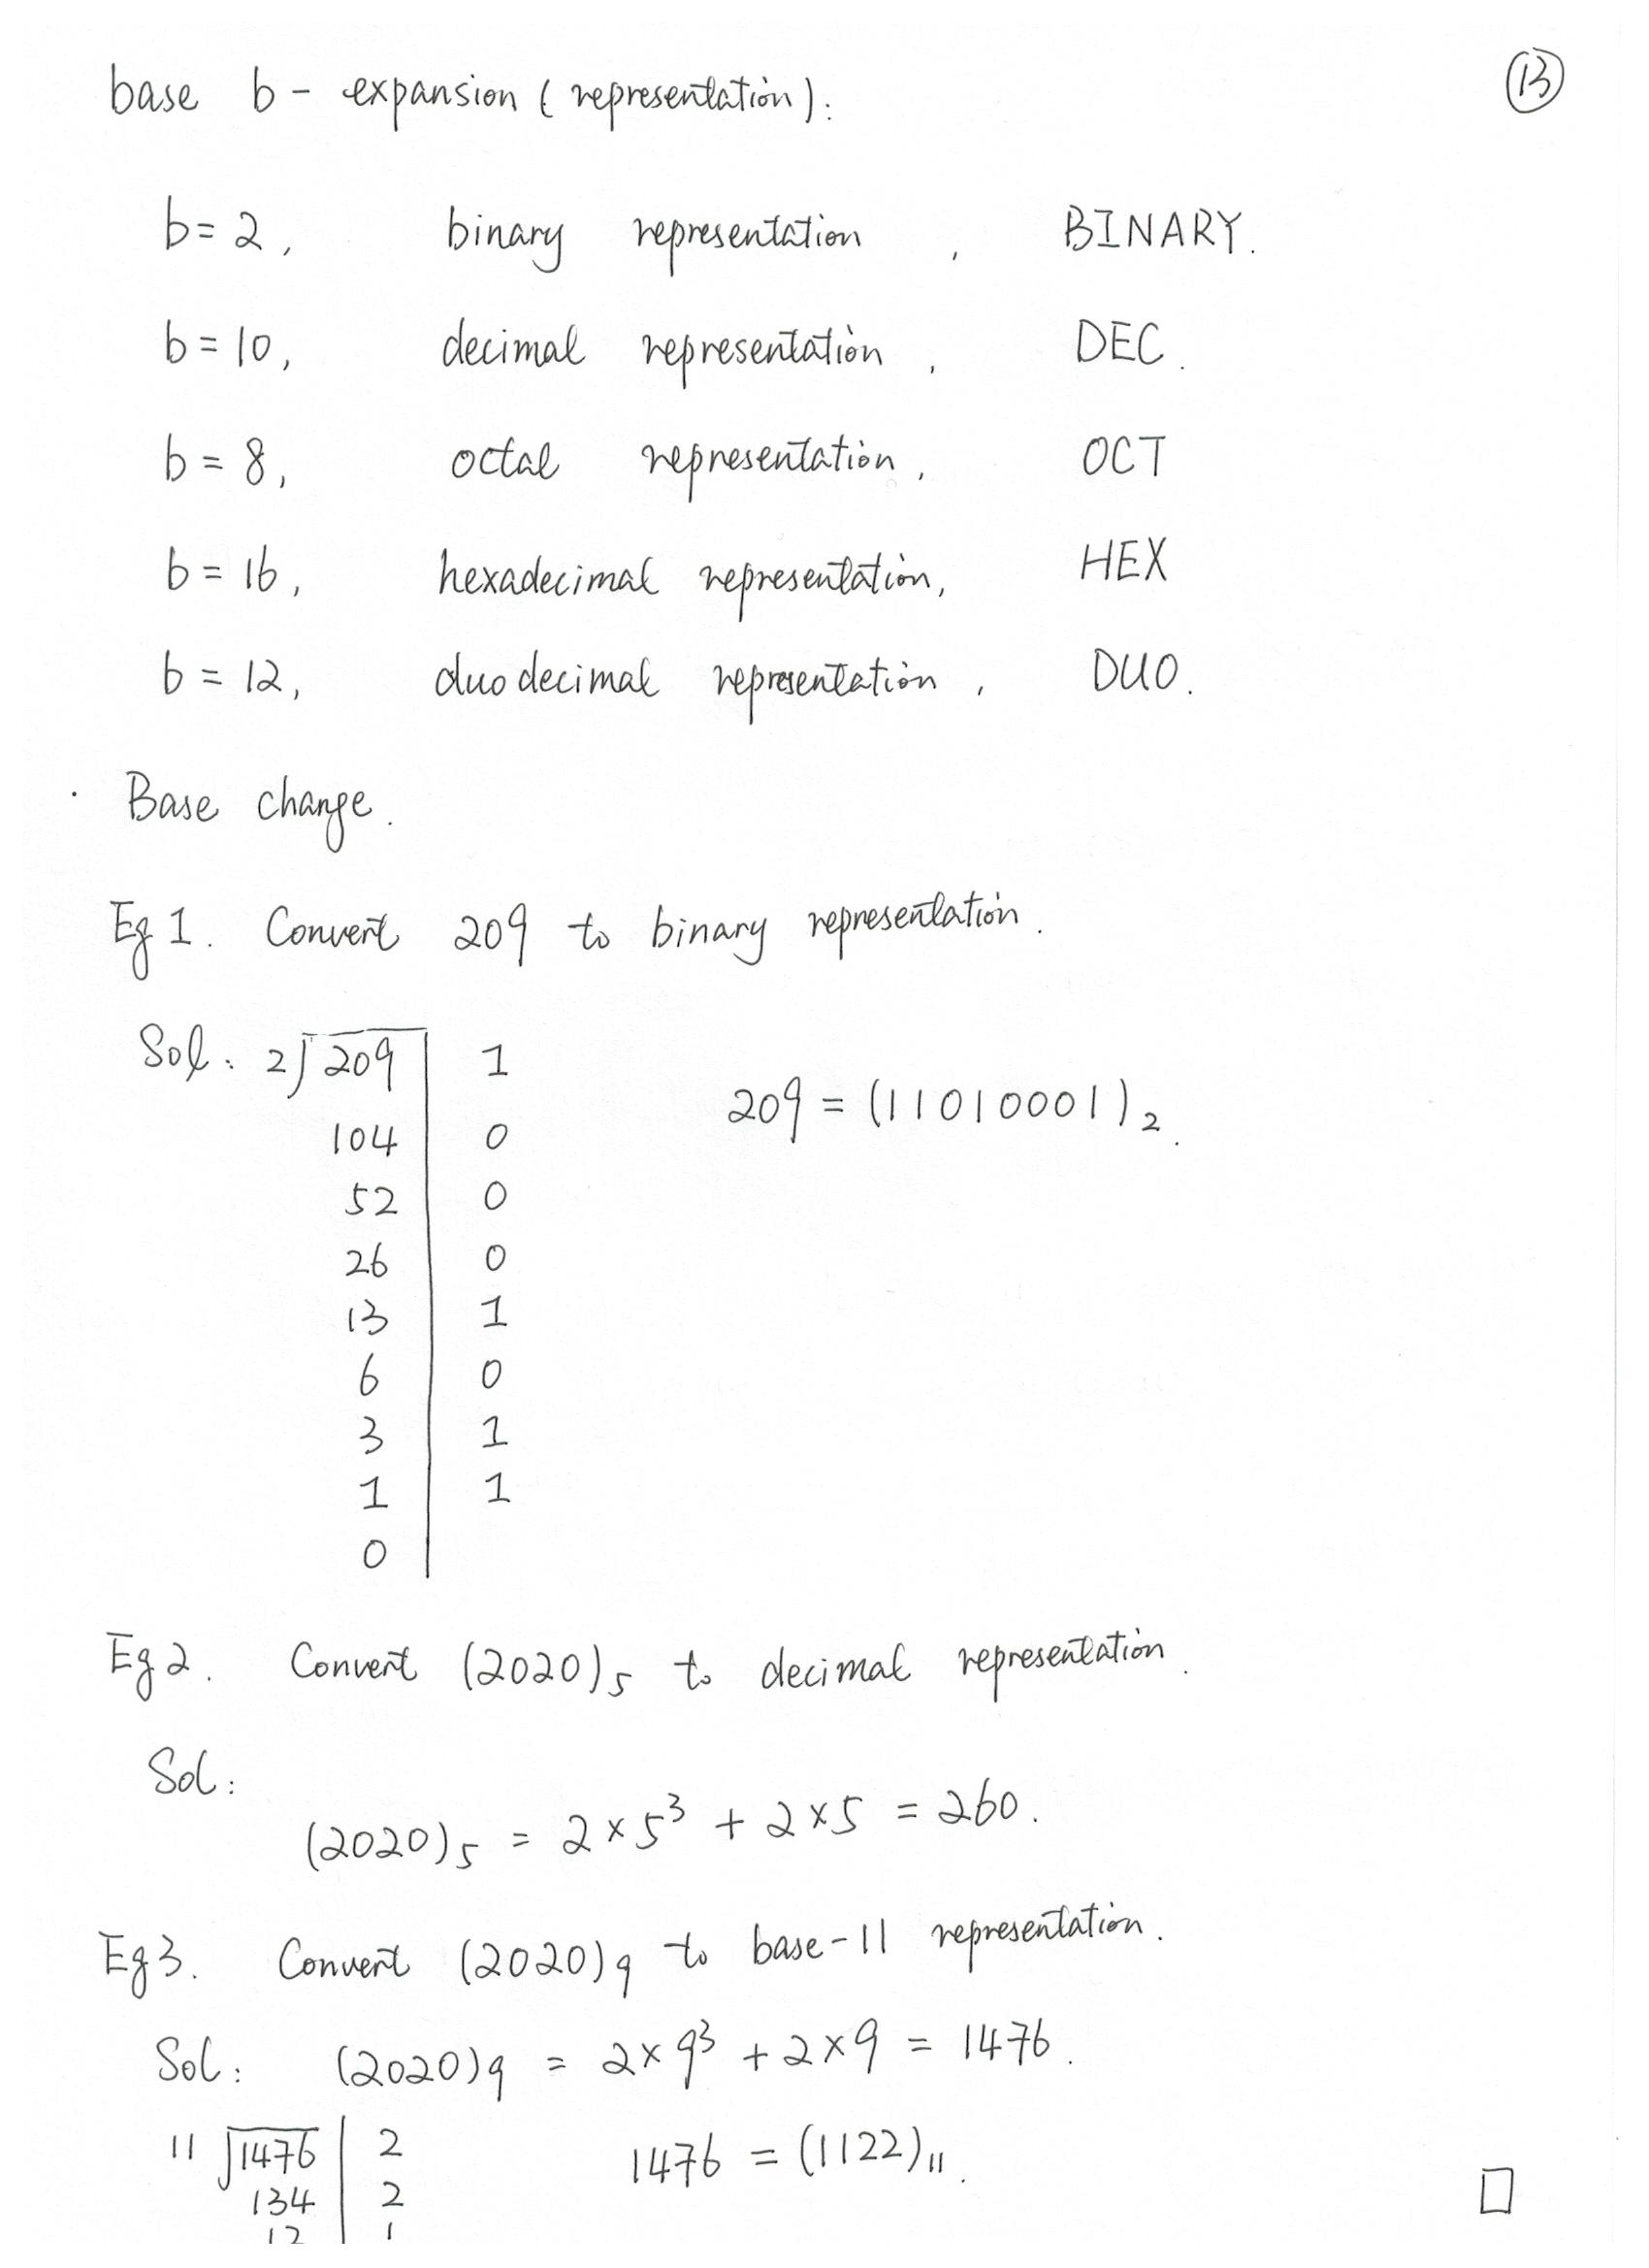 base b - expansion (representation). ⑬
b = 2, binary representation, BINARY.
b = 10, decimal representation, DEC.
b = 8, octal representation, OCT
b = 16, hexadecimal representation, HEX
b = 12, duodecimal representation, DUO.
· Base change.
Eg 1. Convert 209 to binary representation.
Sol: 2)209 | 1
104 | 0
209 = (11010001)₂.
52 | 0
26 | 0
13 | 1
6 | 0
3 | 1
1 | 1
0 |
Eg 2. Convert (2020)₅ to decimal representation.
Sol:
(2020)₅ = 2×5³ + 2×5 = 260.
Eg 3. Convert (2020)₉ to base-11 representation.
Sol: (2020)₉ = 2×9³ + 2×9 = 1476.
11 √1476 | 2 1476 = (1122)₁₁. □
134 | 2
12 | 1